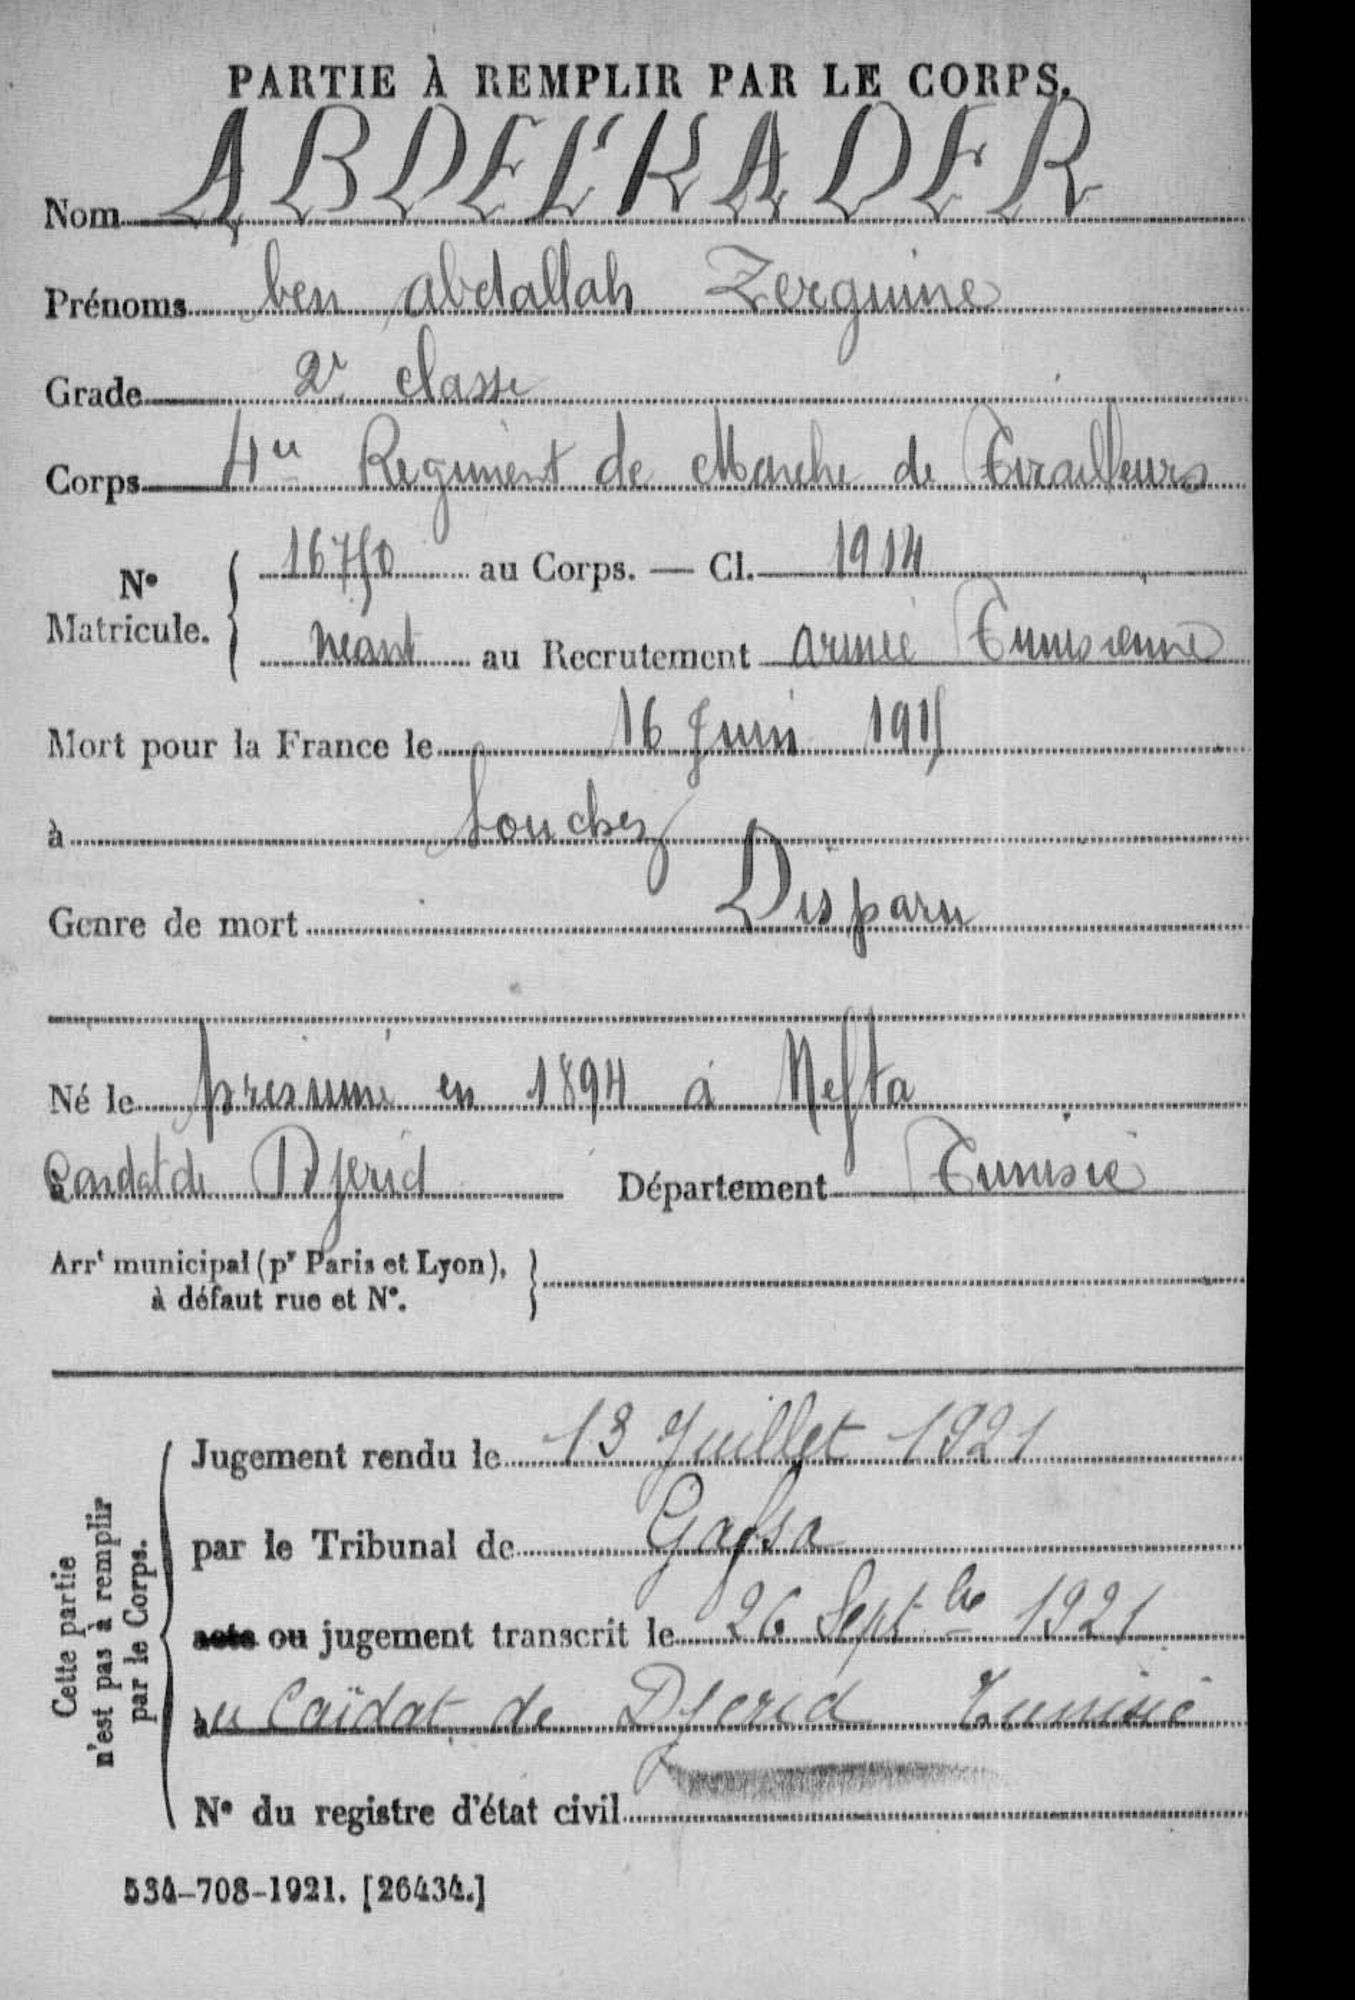 PARTIE À REMPLIR PAR LE CORPS.
Nom ABDEL'KADER
Prénoms ben Abdallah Zerguine
Grade 2e classe
Corps 4e Régiment de Marche de Tirailleurs
No Matricule. { 16750 au Corps. — Cl. 1914
néant au Recrutement armée Tunisienne
Mort pour la France le 16 Juin 1915
à Souchez
Genre de mort Disparu
Né le présumé en 1894 à Nefta
Caïdat de Djerid Département Tunisie
Arrt municipal (pr Paris et Lyon), à défaut rue et No. }
Cette partie n'est pas à remplir par le Corps.
Jugement rendu le 13 Juillet 1921
par le Tribunal de Gafsa
acte ou jugement transcrit le 26 Septbre 1921
au Caïdat de Djerid Tunisie
No du registre d'état civil
534-708-1921. [26434.]